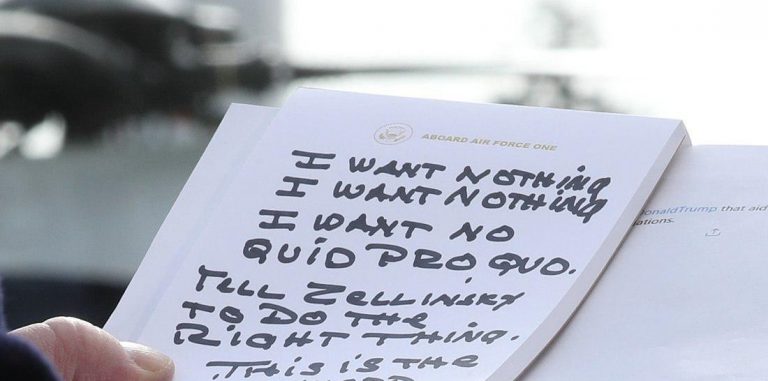 ABOARD AIR FORCE ONE
I WANT NOTHING
I WANT NOTHING
I WANT NO
QUID PRO QUO.
TELL ZELLINSKY
TO DO THE
RIGHT THING.
THIS IS THE
onaldTrump that aid
ations.